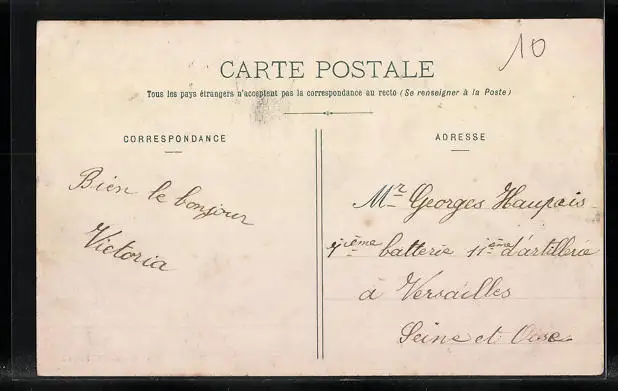 10
CARTE POSTALE
Tous les pays étrangers n'acceptent pas la correspondance au recto (Se renseigner à la Poste)
CORRESPONDANCE
Bien le bonjour
Victoria
ADRESSE
Mr Georges Haupais
batterie 11ième d'artillerie
à Versailles
Seine et Oise